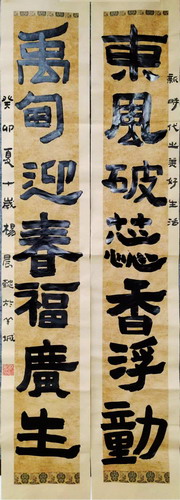 東風破蕊香浮動
新時代之美好生活
禹甸迎春福廣生
癸卯夏十歲楊晨懿於羊城